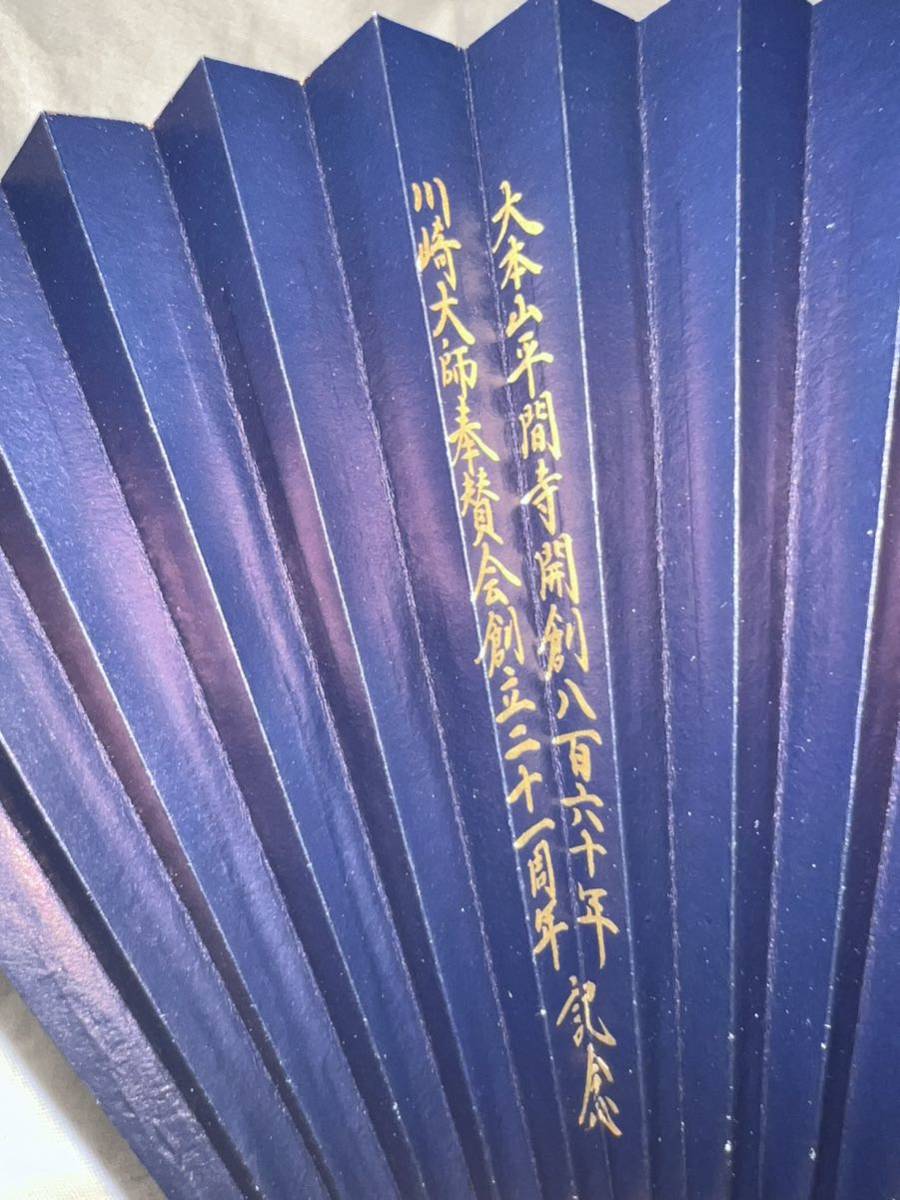 大本山平間寺開創八百六十年
川崎大師奉賛会創立二十一周年
記念